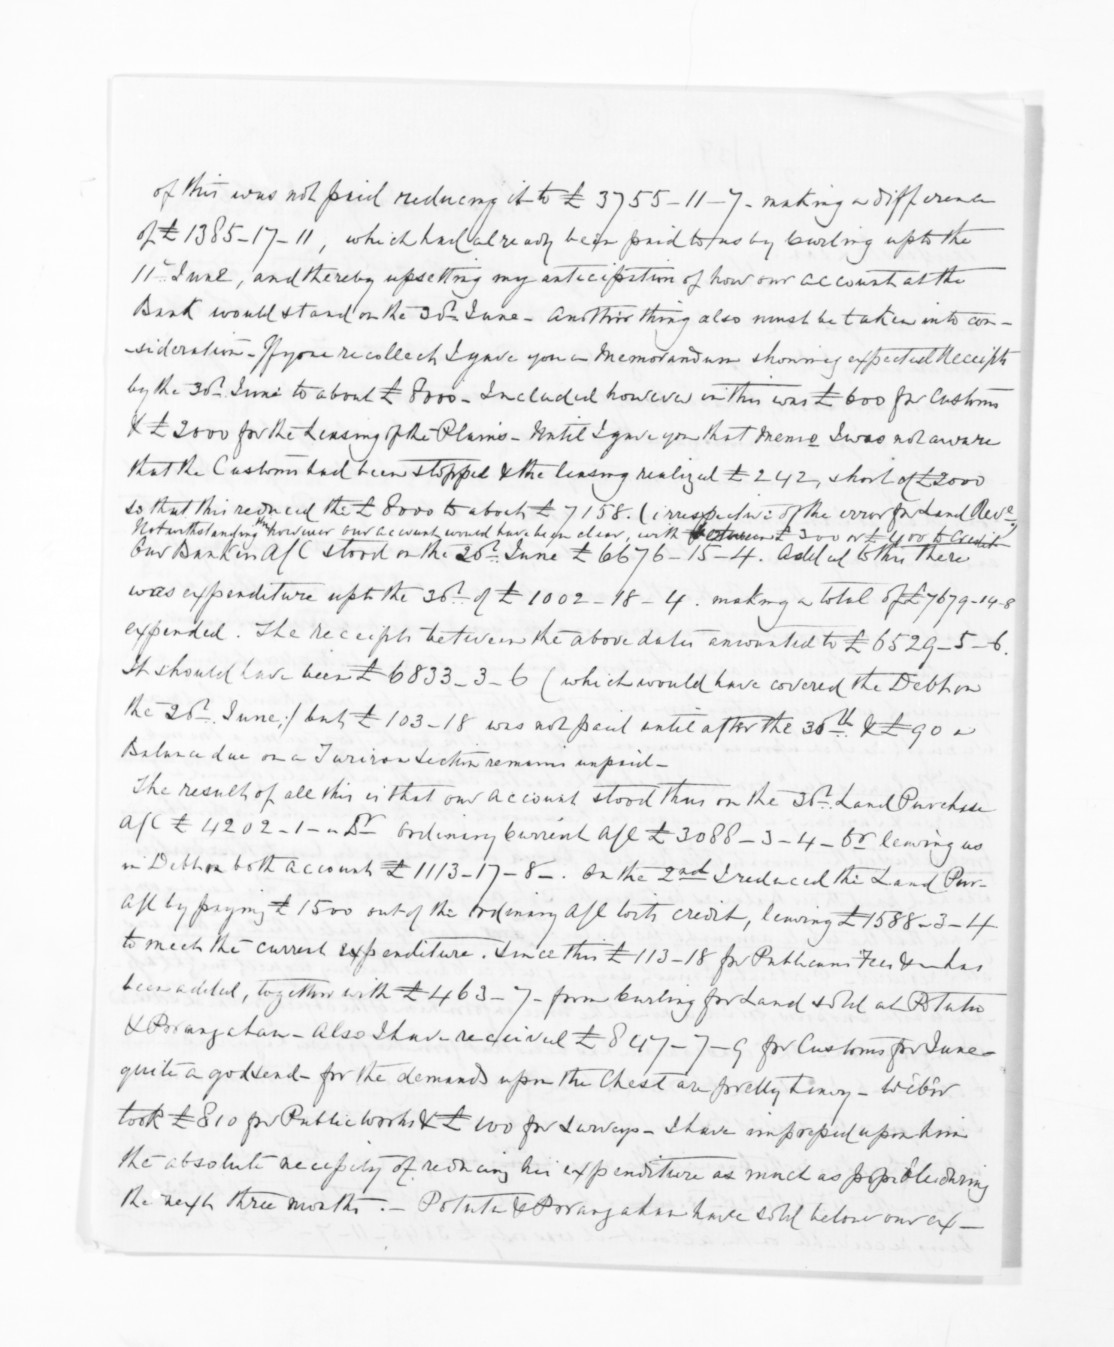 of this was not paid reducing it to £3755-11-7- making a difference
of £1385-17-11, which had already been paid to us by Curling up to the
11th June, and thereby upsetting my anticipation of how our account at the
Bank would stand on the 30th June - Another thing also must be taken into con-
-sideration - If you recollect I gave you a Memorandum showing expected Receipts
by the 30th June to about £8000 - Included however in this was £600 for Customs
& £2000 for the Leasing of the Plains - Until I gave you that Memo I was not aware
that the Customs had been stopped & the leasing realized £242, short of £2000
so that this reduced the £8000 to about £7158. (irrespective of the error for Land Reve
Notwithstanding this however our account would have been clear, with between £300 or £400 to credit
Our Banking A/C stood on the 26th June £6676-15-4. Added to this there
was expenditure up to the 30th of £1002-18-4. making a total of £7679-14-8
expended. The receipts between the above dates amounted to £6529-5-6.
It should have been £6833-3-6 (which would have covered the Debt on
the 26th June,) but £103-18 was not paid until after the 30th & £90 a
Balance due on a Section remains unpaid -
The result of all this is that our account stood thus on the 30th Land Purchase
A/C £4202-1-" Dr Ordinary Current A/C £3088-3-4- Cr leaving us
in Debt on both account £1113-17-8-. On the 2nd I reduced the Land Pur-
A/C by paying £1500 out of the Ordinary A/C to its credit, leaving £1588-3-4
to meet the current expenditure. Since this £113-18 for Publicans Fees &c has
been added, together with £463-7- from Curling for Land sold at Potutu
& Porangahau - Also I have received £847-7-9 for Customs for June -
quite a godsend - for the demands upon the Chest are pretty heavy - Weber
took £810 for Public Works & £100 for Surveys - I have impressed upon him
the absolute necessity of reducing his expenditure as much as possible during
the next three months. - Potutu & Porangahau have sold below our ex-